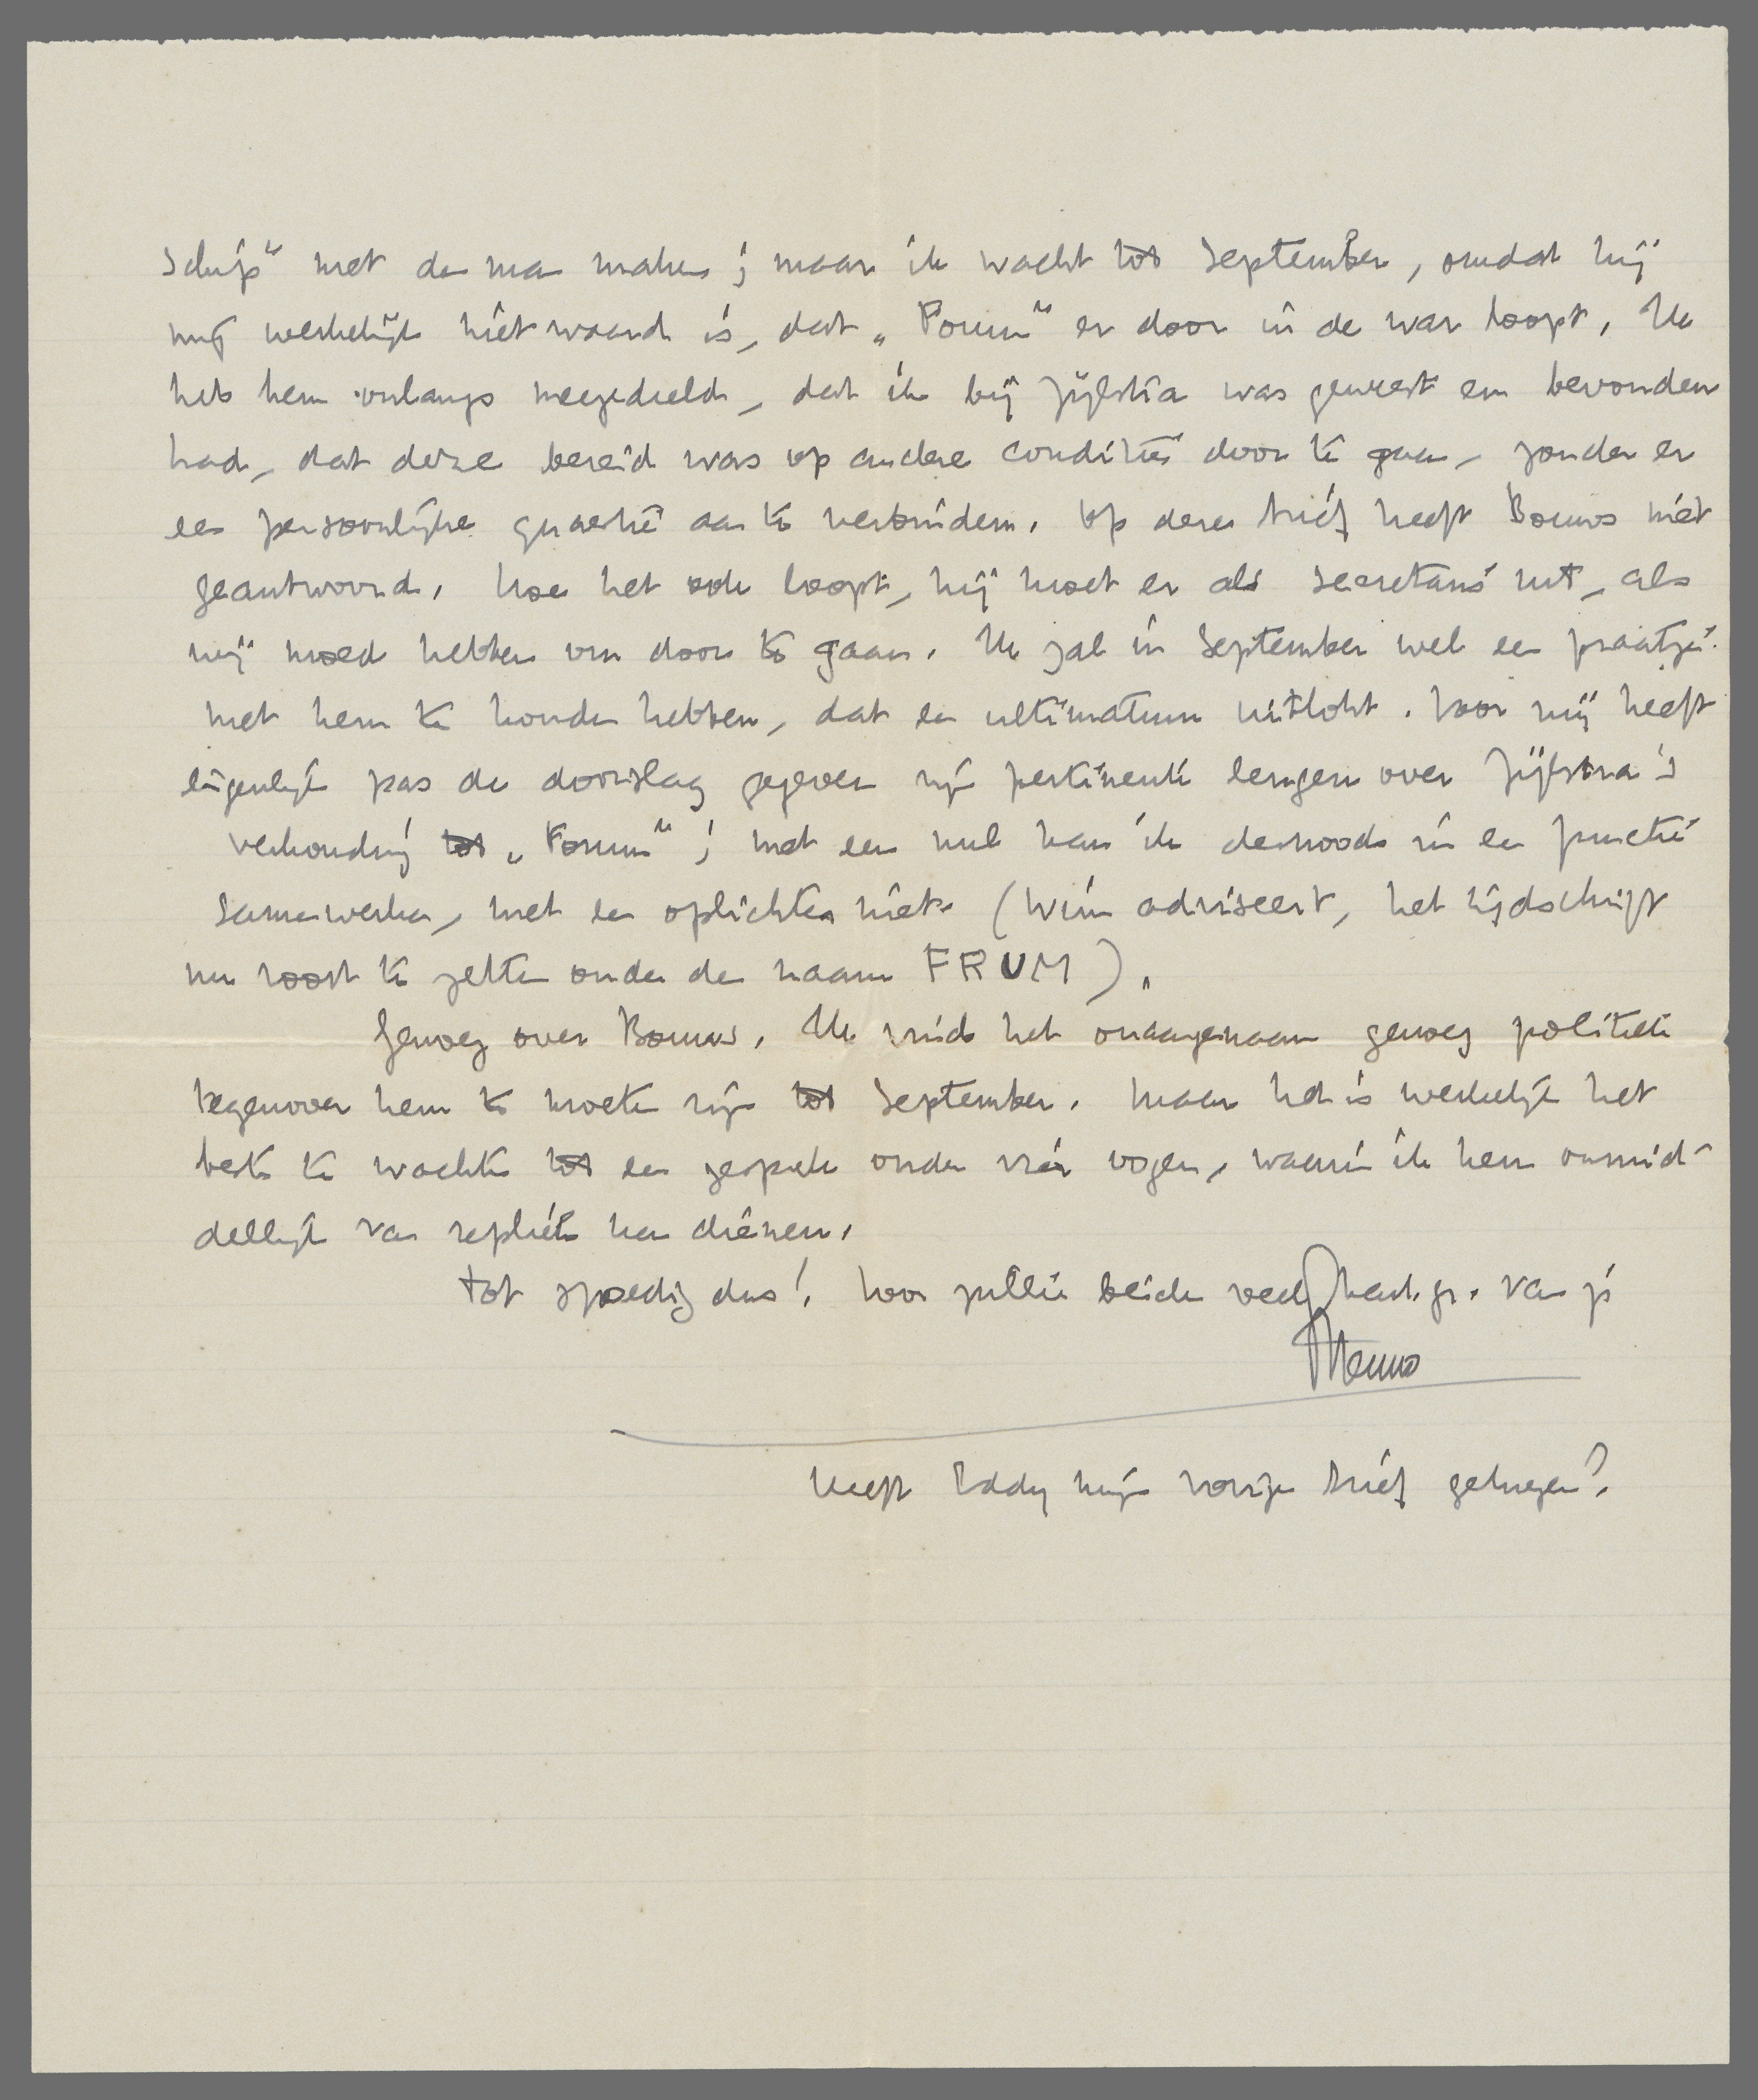 schip” met den man maken; maar ik wacht tot September, omdat hij
mij werkelijk niet waard is, dat „Forum” er door in de war loopt. Ik
heb hem onlangs meegedeeld, dat ik bij Zijlstra was geweest en bevonden
had, dat deze bereid was op andere condities door te gaan, zonder er
een persoonlijke quaestie aan te verbinden. Op dezen brief heeft Bouws niet
geantwoord. Hoe het ook loopt, hij moet er als secretaris uit, als
wij moed hebben om door te gaan. Ik zal in September wel een praatje
met hem te houden hebben, dat een ultimatum uitlokt. Voor mij heeft
eigenlijk pas de doorslag gegeven zijn pertinente leugen over Zijlstra's
verhouding tot „Forum”; met een nul kan ik desnoods in een functie
samenwerken, met een oplichter niet. (Wim adviseert, het tijdschrift
nu voort te zetten onder den naam FRUM).
Genoeg over Bouws. Ik vind het onaangenaam genoeg politiek
tegenover hem te moeten zijn tot September. Maar het is werkelijk het
beste te wachten tot een gesprek onder vier oogen, waarin ik hem onmid-
dellijk van repliek kan dienen.
Tot spoedig dus! Voor jullie beiden veel hart. gr. van je
Menno
Heeft Eddy mijn vorige brief gekregen?